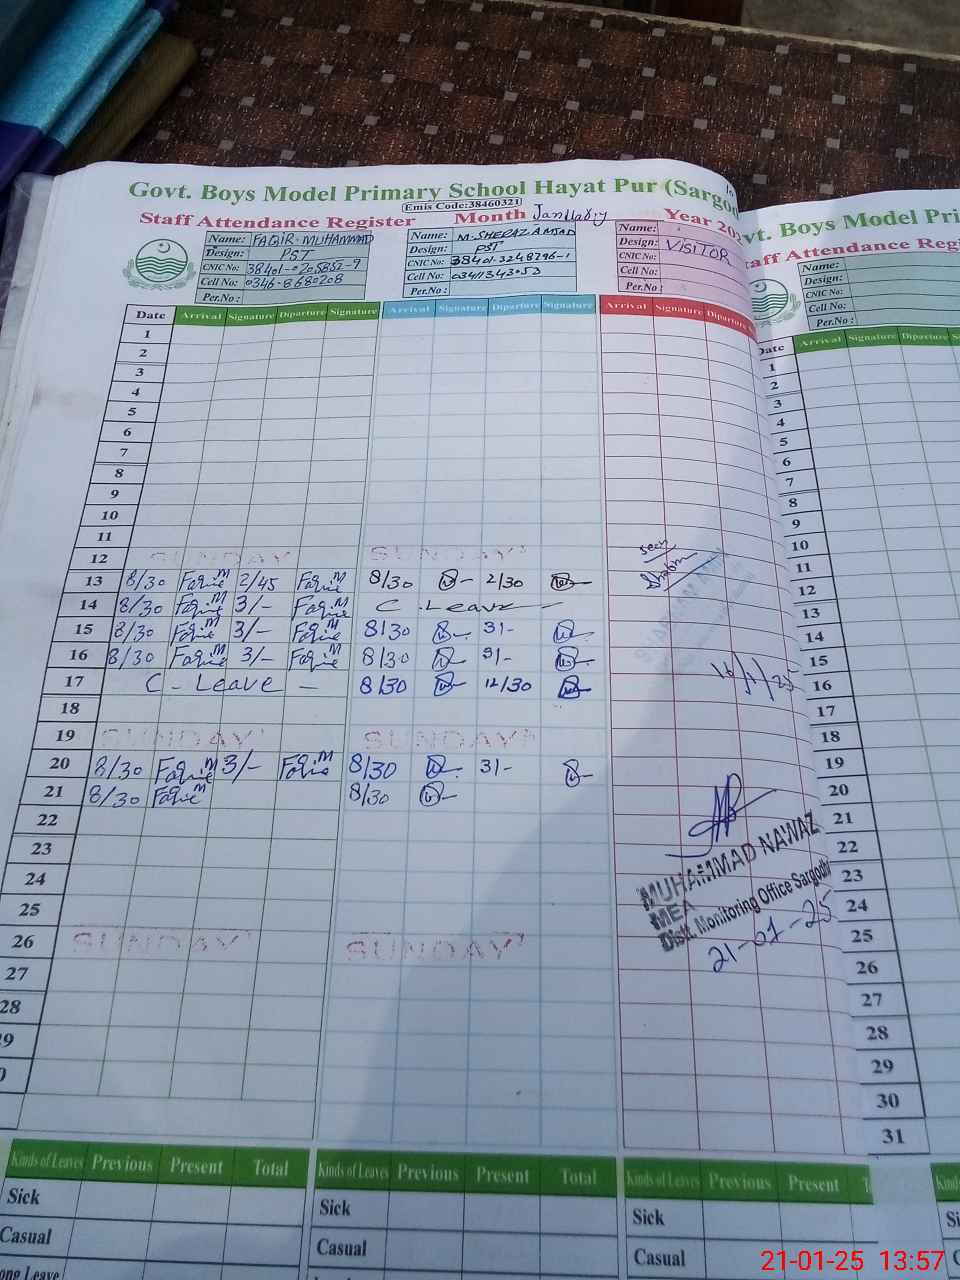 Govt. Boys Model Primary School Hayat Pur (Sargod
Emis Code:38460321
Staff Attendance Register Month January Year 20
Name: FAQIR MUHAMMAD
Design: PST
CNIC No:
Cell No: 0346-8680208
Per.No :
Name: M. SHERAZ AMJAD
Design: PST
CNIC No: 38401-3248796-1
Cell No: 03411343053
Per.No :
Name:
Design: VISITOR
CNIC No:
Cell No:
Per.No :
Date Arrival Signature Diparture Signature Arrival Signature Diparture Signature Arrival Signature Diparture
1
2
3
4
5
6
7
8
9
10
11
12 SUNDAY SUNDAY
13 8/30 Faqir M 2/45 Faqir M 8/30 2/30
14 8/30 Faqir M 3/- Faqir M C. Leave
15 8/30 Faqir M 3/- Faqir M 8/30 3/-
16 8/30 Faqir M 3/- Faqir M 8/30 3/-
17 C - Leave - 8/30 12/30
18
19 SUNDAY SUNDAY
20 8/30 Faqir M 3/- Faqir M 8/30 3/-
21 8/30 Faqir M 8/30
22
23
24
25
26 SUNDAY SUNDAY
27
28
9
0
Seen
16/1/25
MUHAMMAD NAWAZ
MEA
Distt. Monitoring Office Sargodha
21-01-25
Kinds of Leaves Previous Present Total Kinds of Leaves Previous Present Total Kinds of Leaves Previous Present T
Sick Sick Sick
Casual Casual Casual
ong Leave
vt. Boys Model Pri
taff Attendance Regi
Name:
Design:
CNIC No:
Cell No:
Per.No :
Date Arrival Signature Diparture S
1
2
3
4
5
6
7
8
9
10
11
12
13
14
15
16
17
18
19
20
21
22
23
24
25
26
27
28
29
30
31
Kinds
Si
C
21-01-25 13:57